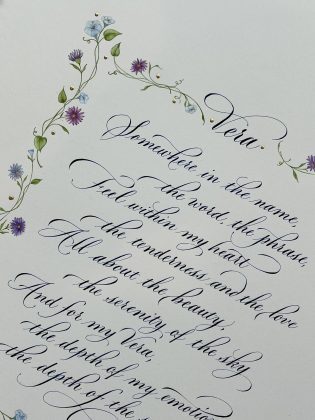 Vera
Somewhere in the name,
the word, the phrase,
Feel within my heart
the tenderness and the love
All about the beauty,
the serenity of the sky
And for my Vera,
the depth of my emotio
the depth of the